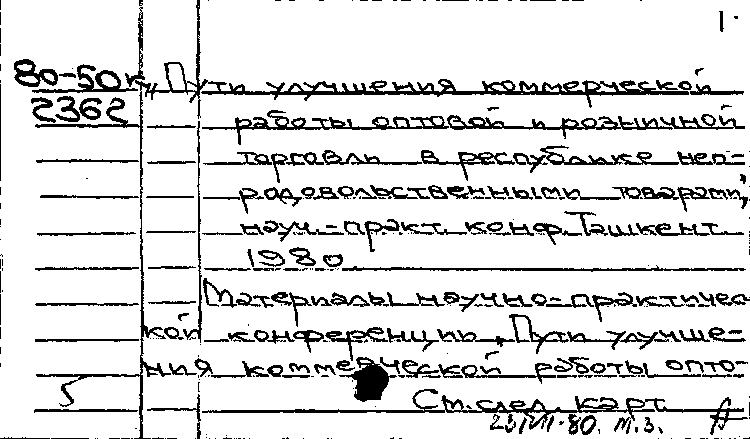 1.
80-50к
2362
„Пути улучшения коммерческой
работы оптовой и розничной
торговли в республике неп-
родовольственными товарами",
науч.-практ. конф. Ташкент.
1980.
Материалы научно-практичес
кой конференции „Пути улучше-
ния коммерческой работы опто-
5
См. след. карт.
80. М.З.